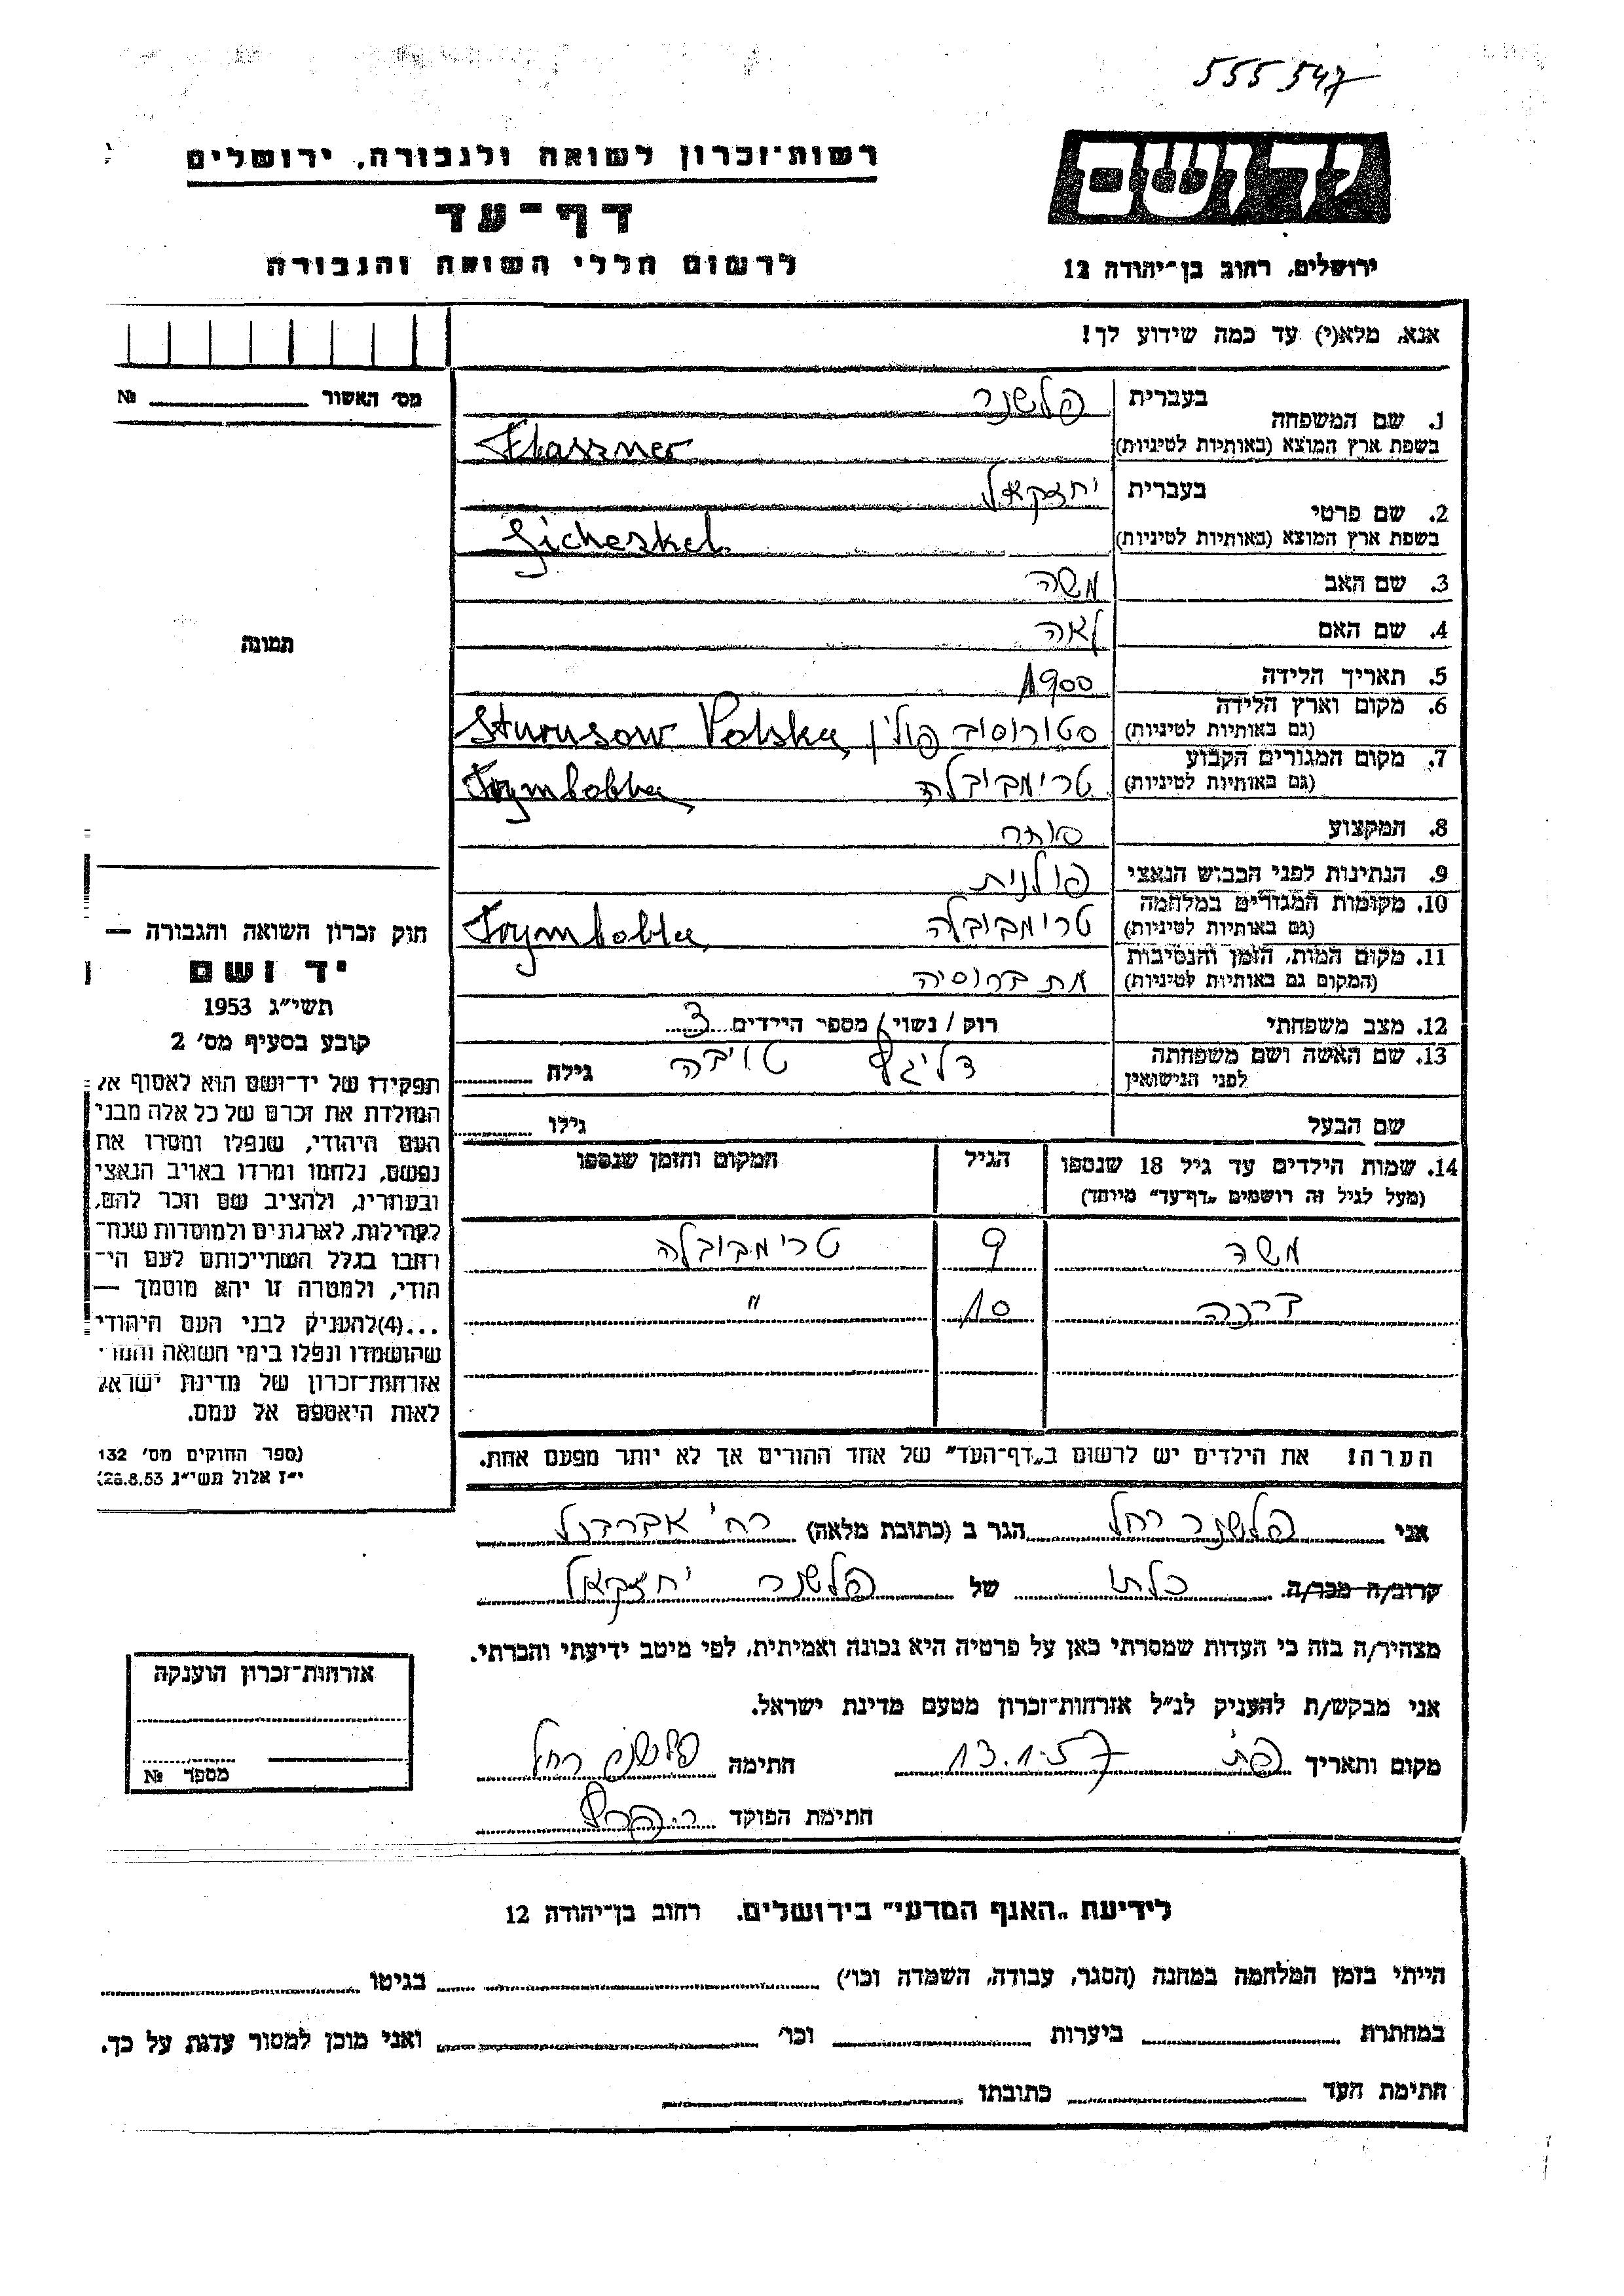 555547
רשות־זכרון לשואה ולגבורה, ירושלים
ידושם
דף־עד
לרשום חללי השואה והגבורה
ירושלים, רחוב בן־יהודה 12
אנא, מלא(י) עד כמה שידוע לך!
מס׳ האשור № 
1. שם המשפחה בעברית פלשנר
בשפת ארץ המוצא (באותיות לטיניות) Flaszner
2. שם פרטי בעברית יחזקאל
בשפת ארץ המוצא (באותיות לטיניות) Jicheskel
3. שם האב משה
4. שם האם לאה
תמונה
5. תאריך הלידה 1900
6. מקום וארץ הלידה (גם באותיות לטיניות) סטורוסוב פולין Sturusow Polska
7. מקום המגורים הקבוע (גם באותיות לטיניות) טרימבובלה Trymbobla
8. המקצוע סוחר
9. הנתינות לפני הכבוש הנאצי פולנית
10. מקומות המגורים במלחמה (גם באותיות לטיניות) טרימבובלה Trymbobla
11. מקום המות, הזמן והנסיבות (המקום גם באותיות לטיניות) מת ברוסיה
12. מצב משפחתי רוק / נשוי / מספר הילדים 3
13. שם האשה ושם משפחתה לפני הנישואין טויבה גילה
שם הבעל גילו
14. שמות הילדים עד גיל 18 שנספו הגיל המקום והזמן שנספו
(מעל לגיל זה רושמים „דף־עד” מיוחד)
משה 9 טרימבובלה
10 "
הערה! את הילדים יש לרשום ב„דף־העד” של אחד ההורים אך לא יותר מפעם אחת.
חוק זכרון השואה והגבורה —
יד ושם
תשי״ג 1953
קובע בסעיף מס׳ 2
תפקידו של יד־ושם הוא לאסוף אל
המולדת את זכרם של כל אלה מבני
העם היהודי, שנפלו ומסרו את
נפשם, נלחמו ומרדו באויב הנאצי
ובעוזריו, ולהציב שם וזכר להם,
לקהילות, לארגונים ולמוסדות שנח־
רבו בגלל השתייכותם לעם הי־
הודי, ולמטרה זו יהא מוסמך —
...(4)להעניק לבני העם היהודי
שהושמדו ונפלו בימי השואה והמרי
אזרחות־זכרון של מדינת ישראל
לאות היאספם אל עמם.
(ספר החוקים מס׳ 132
י״ז אלול תשי״ג 28.8.53)
אני פלשנר רחל הגר ב (כתובת מלאה) רח׳ אברבנל
קרוב/ה מכר/ה כלתו של פלשנר יחזקאל
מצהיר/ה בזה כי העדות שמסרתי כאן על פרטיה היא נכונה ואמיתית, לפי מיטב ידיעתי והכרתי.
אני מבקש/ת להעניק לנ״ל אזרחות־זכרון מטעם מדינת ישראל.
מקום ותאריך פ״ת 13.1.57 חתימה פלשנר רחל
חתימת הפוקד
אזרחות־זכרון הוענקה
מספר №
לידיעת „האגף המדעי” בירושלים. רחוב בן־יהודה 12
הייתי בזמן המלחמה במחנה (הסגר, עבודה, השמדה וכו׳) בגיטו
במחתרת ביערות וכו׳ ואני מוכן למסור עדות על כך.
חתימת העד כתובתו